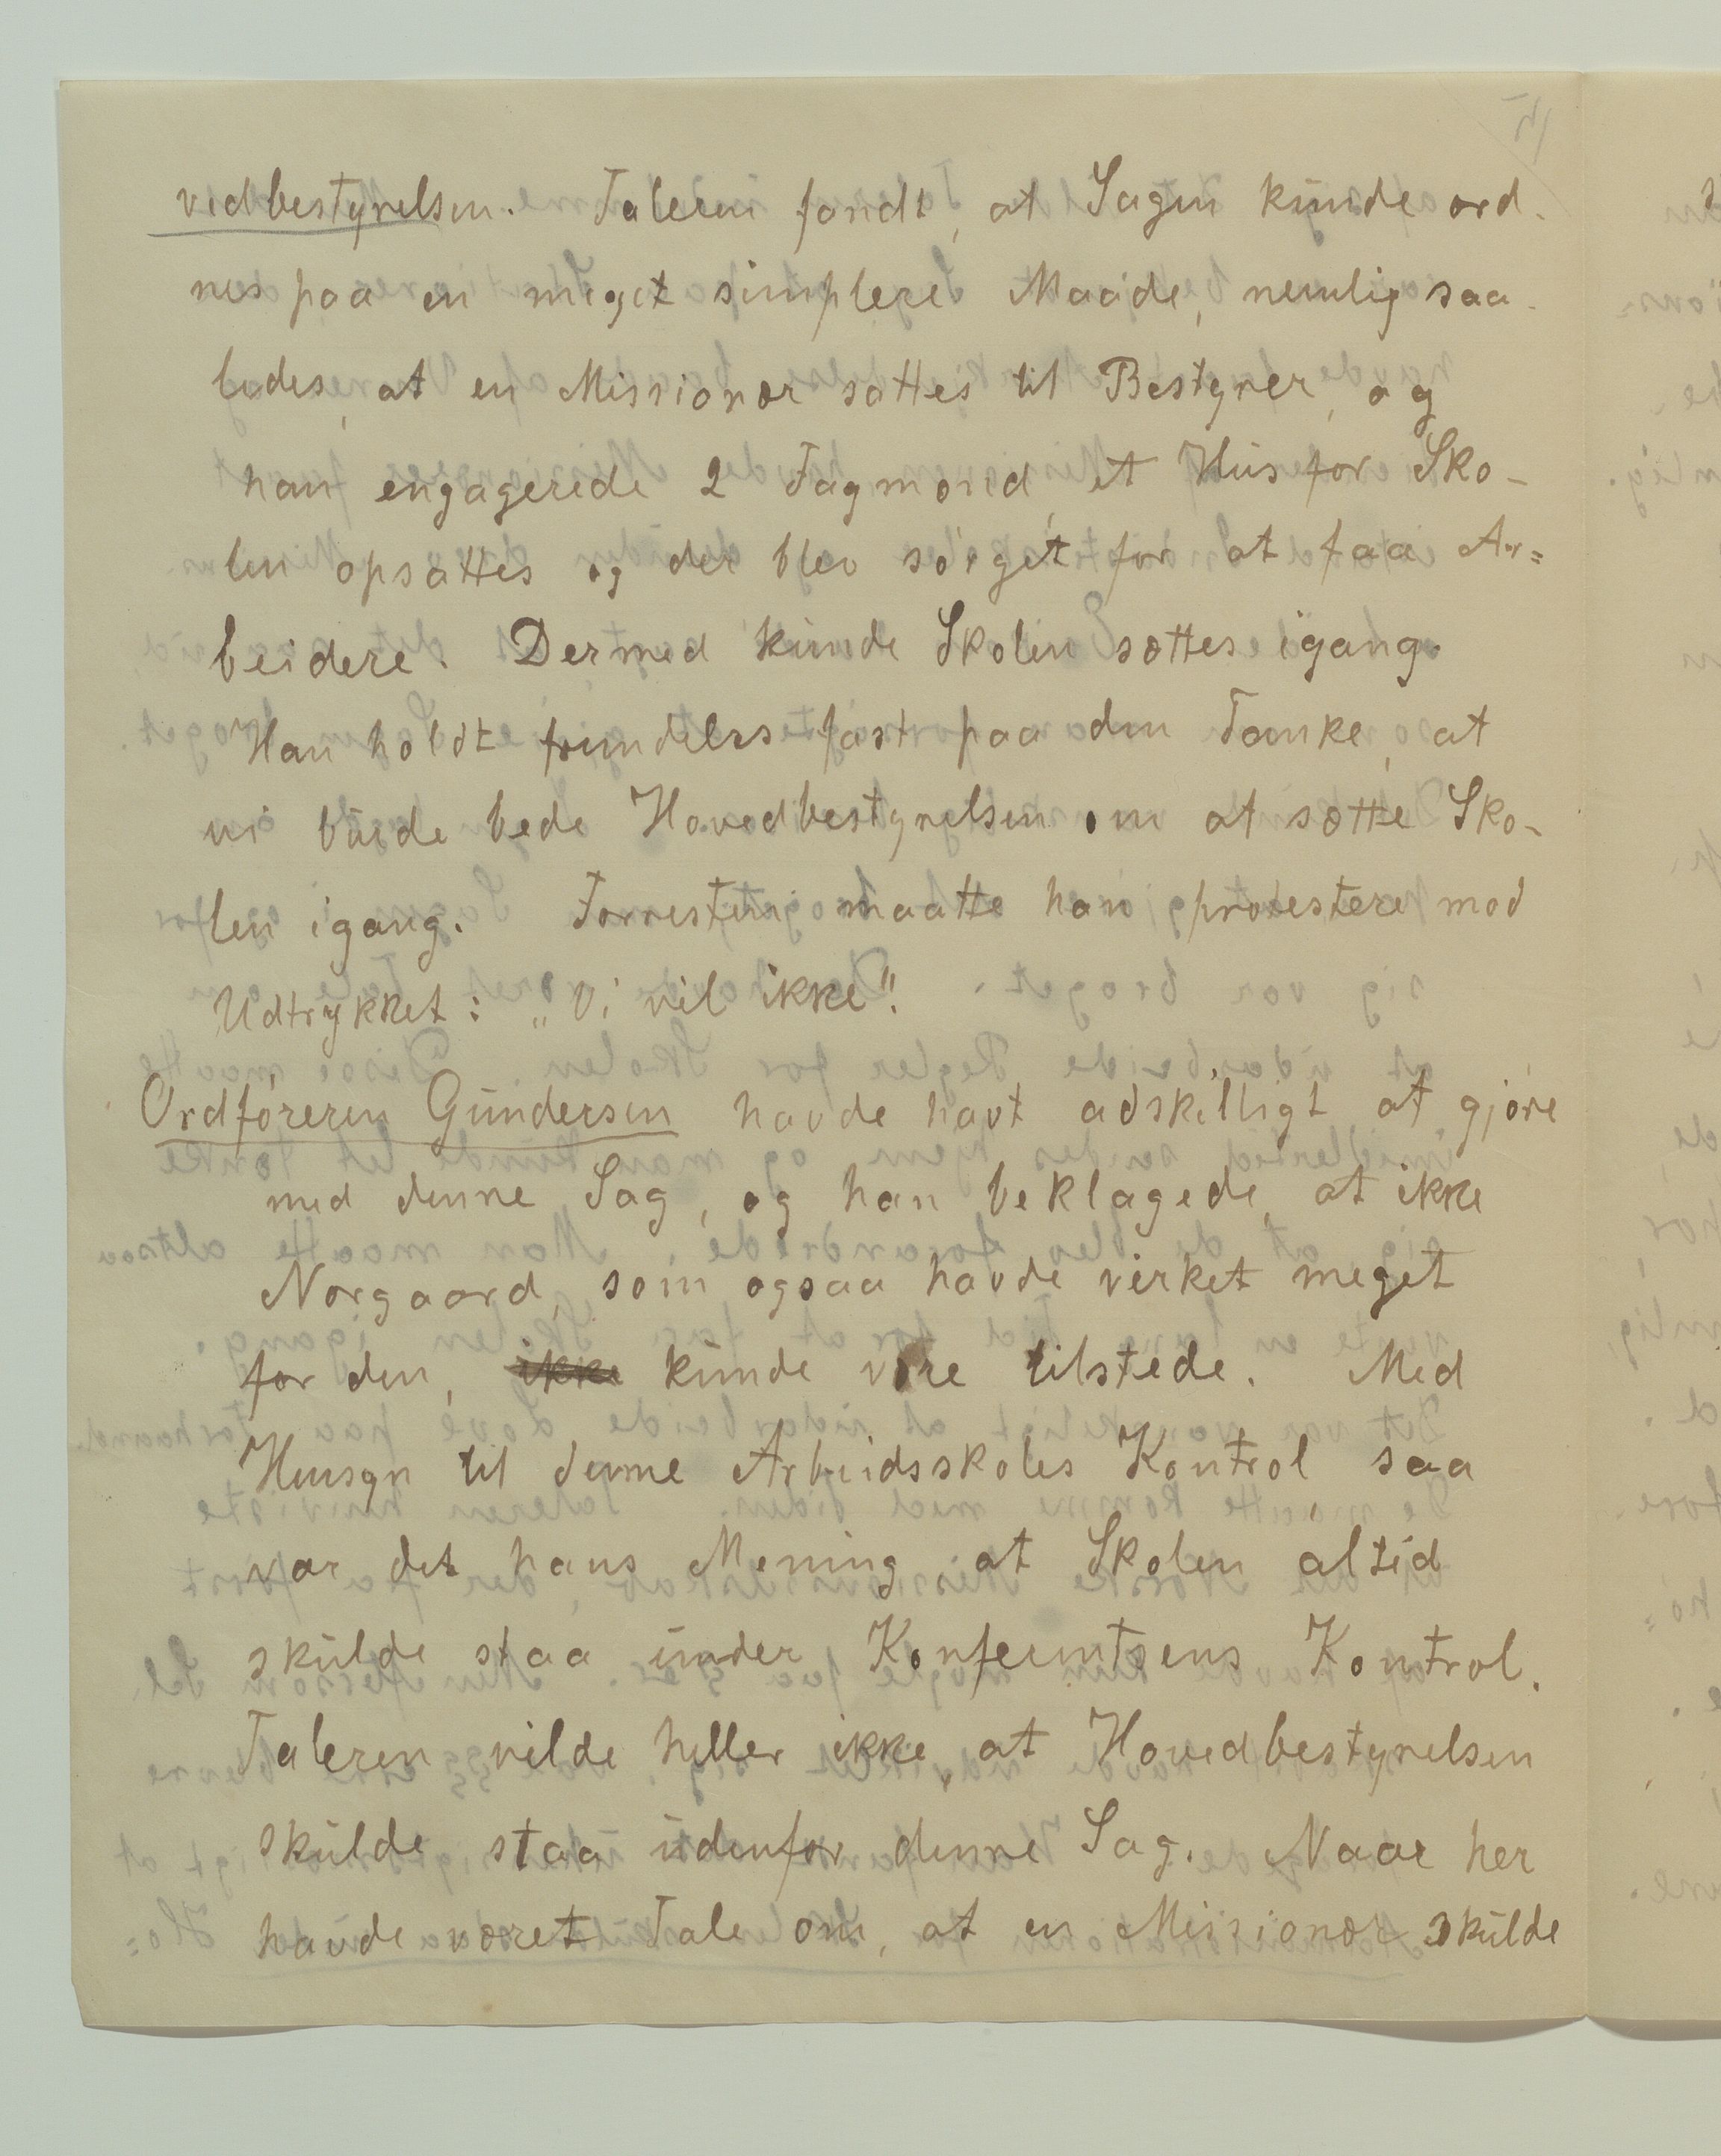 vedbestyrelsen. Taleren fandt, at Sagen kunde ord-
nes paa en meget simplere Maade, nemlig saa-
ledes, at en Missionær sattes til Bestyrer, og
han engagerede 2 Fagmænd, et Hus for Sko-
len opsattes og der blev sørget for at faa Ar=
beidere. Dermed kunde Skolen sættes igang.
Han holdt fremdeles fast paa den Tanke, at
vi burde bede Hovedbestyrelsen om at sætte Sko-
len igang. Forresten maatte han protestere mod
Udtrykket: „Vi vil ikke".
Ordføreren Gundersen havde havt adskilligt at gjøre
med denne Sag, og han beklagede, at ikke
Norgaard, som ogsaa havde virket meget
for den, ikke kunde være tilstede. Med
Hensyn til denne Arbeidsskoles Kontrol saa
var det hans Mening, at Skolen altid
skulde staa under Konferentsens Kontrol.
Taleren vilde heller ikke, at Hovedbestyrelsen
skulde staa udenfor denne Sag. Naar her
havde været Tale om, at en Missionær skulde